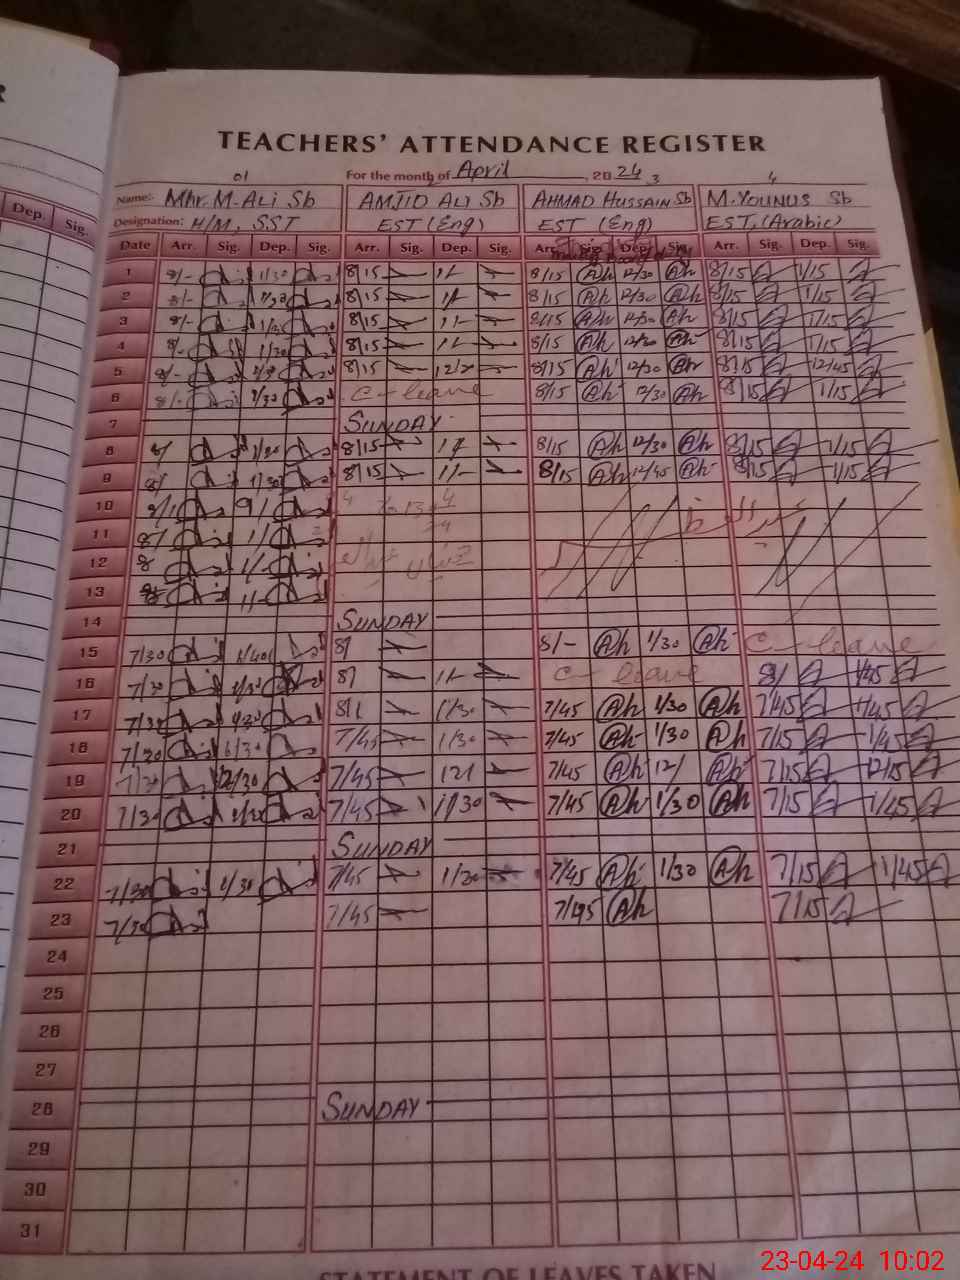 R
TEACHERS' ATTENDANCE REGISTER
01 For the month of April, 2024 3 4
Name:- Mhr. M. Ali Sb AMJID ALI Sb AHMAD HUSSAIN Sb M. YOUNUS Sb
Designation:- H/M, SST EST (Eng) EST (Eng) EST, (Arabic)
Dep. Sig. Date Arr. Sig. Dep. Sig. Arr. Sig. Dep. Sig. Arr. Sig. Dep. Sig. Arr. Sig. Dep. Sig.
1 8/- 1/30 8/15 1/- 8/15 Ah 12/30 Ah 8/15 1/15
2 8/- 1/30 8/15 1/- 8/15 Ah 12/30 Ah 8/15 1/15
3 8/- 1/30 8/15 1/- 8/15 Ah 12/30 Ah 8/15 1/15
4 8/- 1/30 8/15 1/- 8/15 Ah 12/30 Ah 8/15 1/15
5 8/- 8/15 8/15 Ah 12/30 Ah 8/15 12/45
6 8/- 1/30 C-leave 8/15 Ah 12/30 Ah 8/15 1/15
7 SUNDAY
8 8/ 1/30 8/15 1/- 8/15 Ah 12/30 Ah 8/15 1/15
9 8/ 1/30 8/15 1/- 8/15 Ah 12/45 Ah 8/15 1/15
10
11 8/ 1/
12 8 1/-
13 8 1/-
14 SUNDAY
15 7/30 1/40 8/ 8/- Ah 1/30 Ah C-leave
16 7/30 1/30 8/ 1/- C-leave 8/ 1/45
17 7/30 1/30 8/ 1/30 7/45 Ah 1/30 Ah 7/45 1/45
18 7/30 1/30 7/45 1/30 7/45 Ah 1/30 Ah 7/15 1/45
19 7/30 12/30 7/45 12/ 7/45 Ah 12/ Ah 7/15 12/15
20 7/30 1/30 7/45 1/30 7/45 Ah 1/30 Ah 7/15 1/45
21 SUNDAY
22 7/30 1/30 7/45 1/30 7/45 Ah 1/30 Ah 7/15 1/45
23 7/30 7/45 7/45 Ah 7/15
24
25
26
27
28 SUNDAY
29
30
31
STATEMENT OF LEAVES TAKEN
23-04-24 10:02